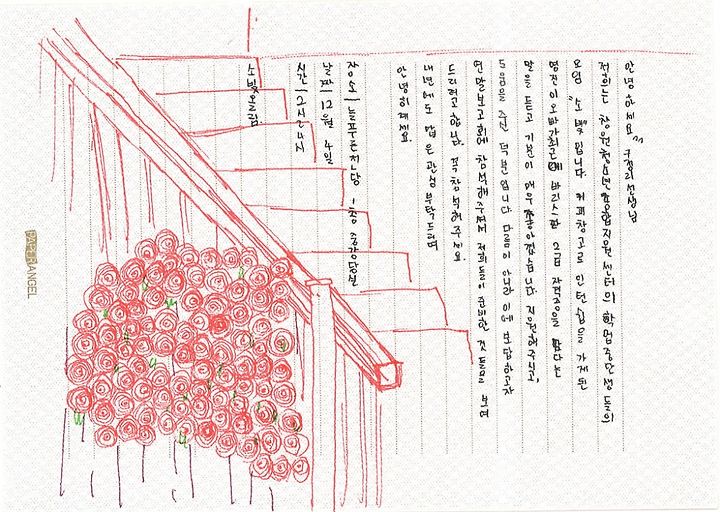 안녕하세요^^ 구정희선생님
저희는 창원청소년종합지원센터의 학업중단생들의
모임 "소빛"입니다 커피창고로 인턴쉽을 가게된
영진이오빠가최근에 바리스타 2급 자격증을 땄다는
말을 듣고 기분이 매우좋아졌습니다 지원해주시고,
도움을 주신 덕분입니다 다름이 아니라 이에 보답하고자
연말보고회에 참석해주셔서 저희들이 준비한 것들을 보여
드리려고합니다. 꼭참석해주세요.
내년에도 많은 관심 부탁드리며
안녕히계세요.
장소/늘푸른전당 1층 중강당실
날짜/12월 4일
시간/2시~4시
소빛올림
PAPER ANGEL